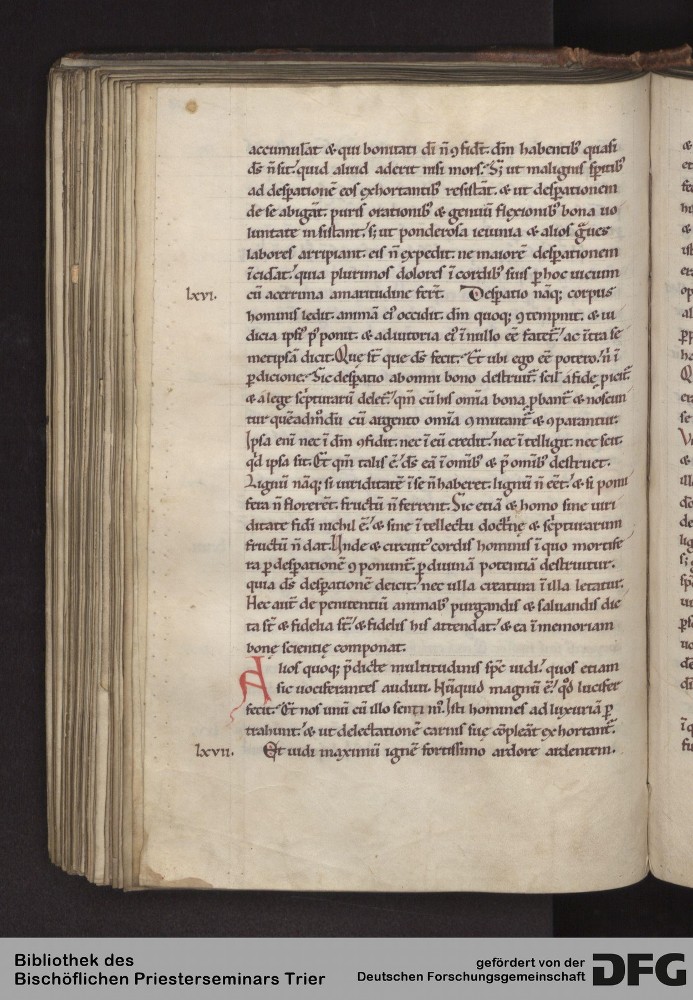 accumulat̄ & qui bonitati dī n̄ ꝯfidt̄. dīn habentibꝰ quasi
dš n̄ sit. quid aliud aderit nisi mors. Sꝫ ut malignis sp̄itibꝰ
ad desꝑationē eos exhortantibꝰ resistāt. & ut desꝑationem
de se abigāt. puris orationibꝰ & genuū flexionibꝰ bona uo
luntate insistant. sꝫ ut ponderosa ieiunia & alios g̃ues
labores arripiant. eis n̄ expedit. ne maiorē desꝑationem
īcidāt. quia plurimos dolores ī cordibꝰ suis ꝑ hoc uicium
lxvi. cū acerrima amaritudine fert̄. Desꝑatio nāqꝫ corpus
hominis ledit. animā eiꝰ occidit. dīn quoqꝫ ꝯtempnit. & iu
dicia ipsiꝰ p̄ponit. & adiutoria eiꝰ ī nullo eē fatet᷑. ac īt̄ra se
metipsā dicit. Que st̄ que dš fecit. Et ubi ego eē potero. n̄ ī
ꝑdicione. Sic desꝑatio ab omni bono destruit᷑. scil᷑ a fide picit᷑.
& a lege sc̄pturarū delet᷑. qm̄ cū his om̄ia bona ꝓbant᷑ & noscun
tur quēadmōdū cū argento om̄ia ꝯmutant᷑ & ꝯparantur.
Ipsa eni nec ī dīn ꝯfidit. nec ī eū credit. nec ītelligit. nec scit.
qd̄ ipsa sit. Et qm̄ talis ē. dš eā ī om̄ibꝰ & p̄ om̄ibꝰ destruet.
Lignū nāqꝫ si uiriditatē ī se n̄ haberet. lignū n̄ eēt. & si pomi
fera n̄ florerēt. fructū n̄ ferrent. Sic etiā & homo sine uiri
ditate fidei nichil ē. & sine ītellectu doct̄nę & sc̄pturarum
fructū n̄ dat. Unde & circuitꝰ cordis hominis ī quo mortife
ra ꝑ desꝑationē ꝯponunt᷑. ꝑ diuinā potentiā destruitur.
quia dš desꝑationē deicit. nec ulla creatura ī illa letatur.
Hec aut̄ de penitentiū animabꝰ purgandis & saluandis dic
ta st̄ & fidelia st̄. & fidelis his attendat. & ea ī memoriam
bonę scientię componat.
Alios quoqꝫ p̄dicte multitudinis sp̄c uidi. quos etiam
sic uociferantes audiui. Nūquid magnū ē. qd̄ lucifer
fecit. Et nos unū cū illo senti mꝰ. Isti homines ad luxuriā ꝑ
trahunt. & ut delectationē carnis suę cōpleāt exhortant᷑.
lxvii. Et uidi maximū ignē fortissimo ardore ardentem.
Bibliothek des
Bischöflichen Priesterseminars Trier
gefördert von der
Deutschen Forschungsgemeinschaft
DFG